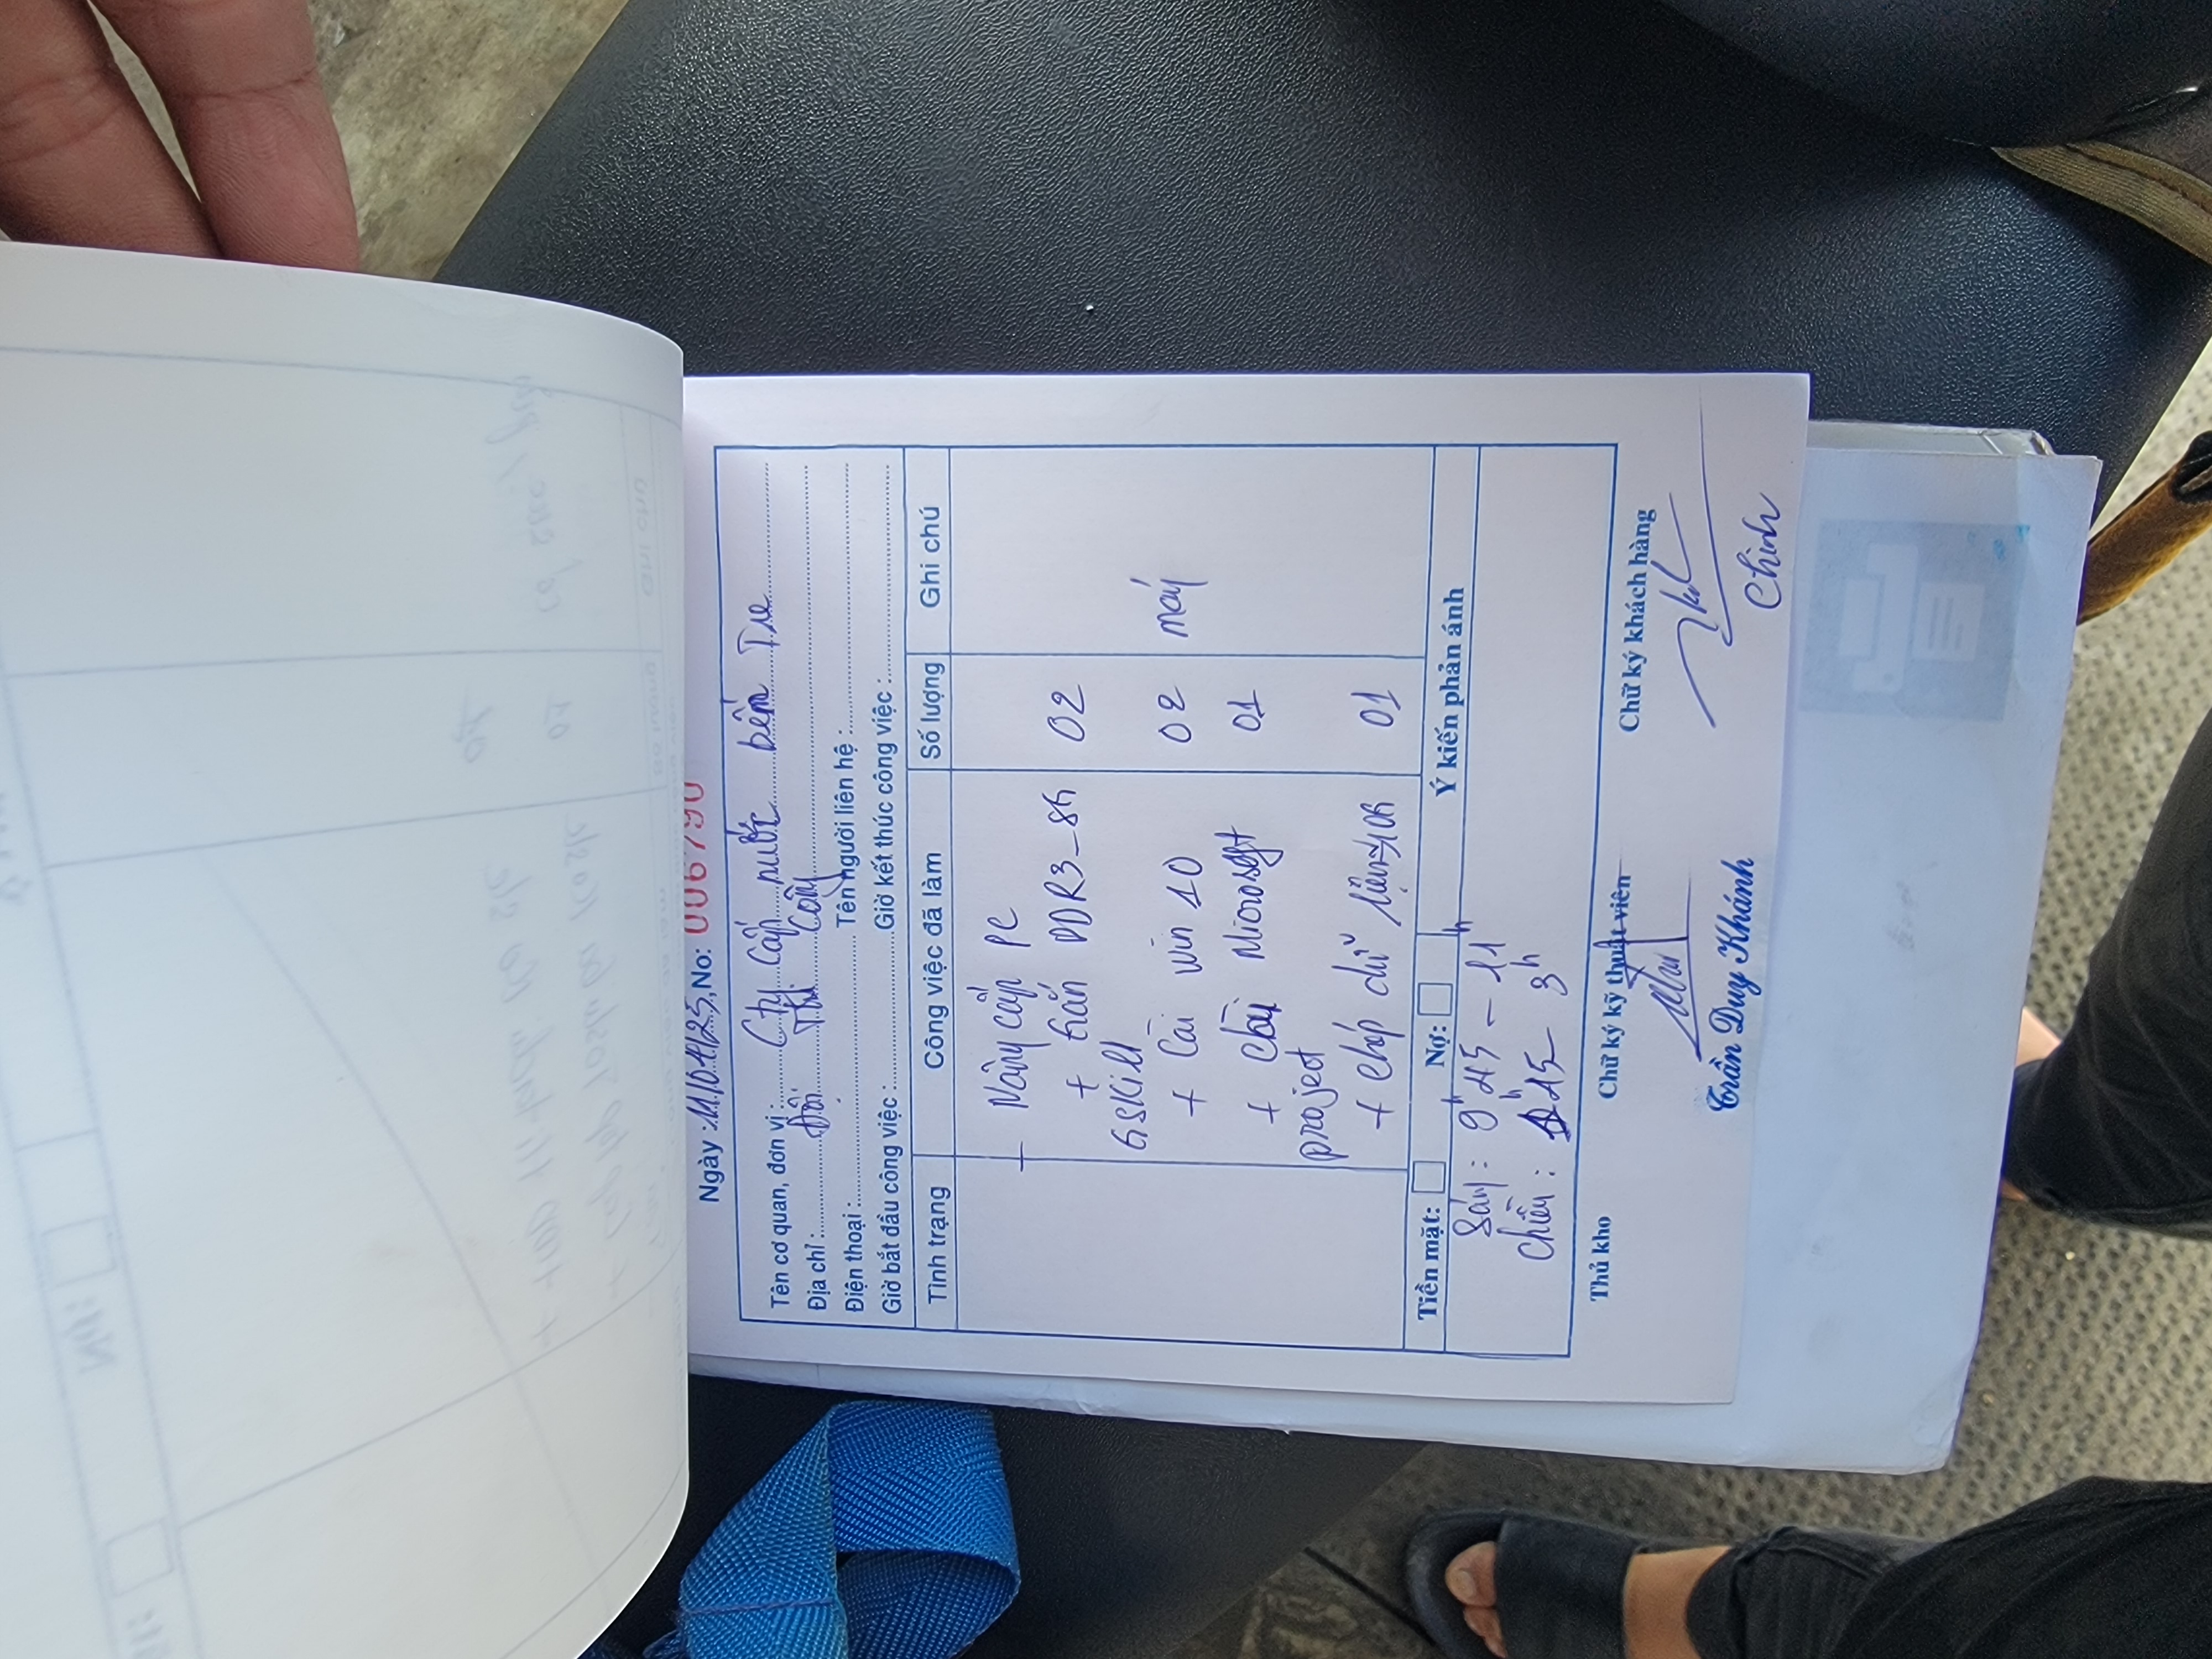 Ngày : 11/04/25, No: 006790
Tên cơ quan, đơn vị : Cty Cấp nước bến Tre
Địa chỉ :
Điện thoại : Tên người liên hệ :
Giờ bắt đầu công việc : Giờ kết thúc công việc :
Tình trạng Công việc đã làm Số lượng Ghi chú
Nâng cấp PC
+ DDR3_8G 02
GSKill
+ Cài win 10 02 máy
+ Cài Microsoft 01
project
+ Chép dữ liệu 01
Tiền mặt: Nợ: Ý kiến phản ánh
Sáng : 9h45 - 11h
Chiều : 3h
Thủ kho Chữ ký kỹ thuật viên Chữ ký khách hàng
Trần Duy Khánh Chinh